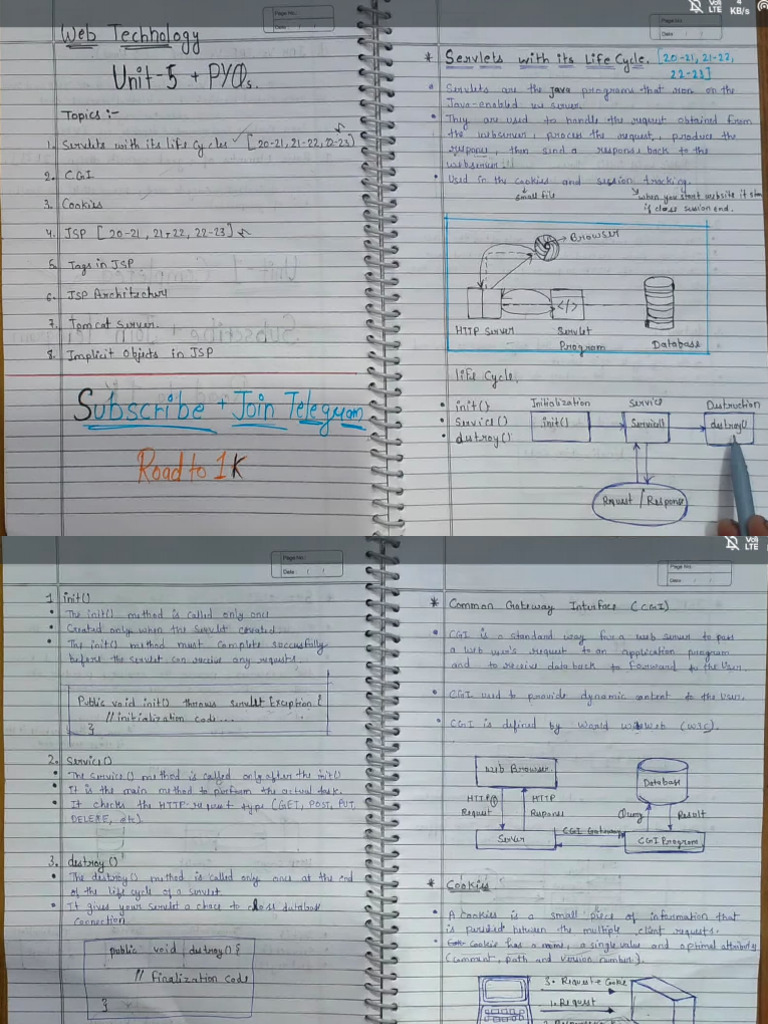 Page No.:
Date: / /
Web Technology
Unit-5 + PYQs.
Topics :-
1. Servlets with its life Cycles [20-21, 21-22, 22-23]
2. CGI
3. Cookies
4. JSP [20-21, 21-22, 22-23]
5. Tags in JSP
6. JSP Architecture
7. Tomcat Server.
8. Implicit Objects in JSP
Subscribe + Join Telegram
Road to 1K
VoLTE
4 KB/s
Page No.:
Date: / /
* Servlets with its Life Cycle. [20-21, 21-22,
22-23]
• Servlets are the java programs that run on the
Java-enabled server.
• They are used to handle the request obtained from
the webserver, process the request, produce the
response, then send a response back to the
webserver.
• Used in the cookies and session tracking.
small file
when you start website it start
if close session end.
Browser
HTTP Server
</>
Servlet
Program
Database
life Cycle.
• init()
• Service()
• destroy()
Initialization
Service
Destruction
init()
Service()
destroy()
Request / Response
Page No.:
Date: / /
1 init()
• The init() method is called only once
• Created only when the Servlet created.
• The init() method must complete successfully
before the servlet can receive any requests.
Public void init() throws servlet Exception {
// initialization code...
}
2. Service()
• The service() method is called only after the init()
• It is the main method to perform the actual task.
• It checks the HTTP request type (GET, POST, PUT,
DELETE, etc)
3. destroy()
• The destroy() method is called only once at the end
of the life cycle of a servlet
• It gives your servlet a chace to close database
connection
public void destroy() {
// Finalization code
}
VoLTE
Page No.:
Date: / /
* Common Gateway Interface (CGI)
• CGI is a standard way for a web server to pass
a web user's request to an application program
and to receive data back to forward to the User.
• CGI used to provide dynamic content to the User.
• CGI is defined by World Web (W3C).
Web Browser
HTTP Request
HTTP Response
Server
CGI Gateway
Database
Query
Result
CGI Program
* Cookies
• A Cookies is a small piece of information that
is persisted between the multiple client requests.
• Cookie has a name, a single value and optional attributes
(comment, path and version number).
3. Request + Cookie
1. Request